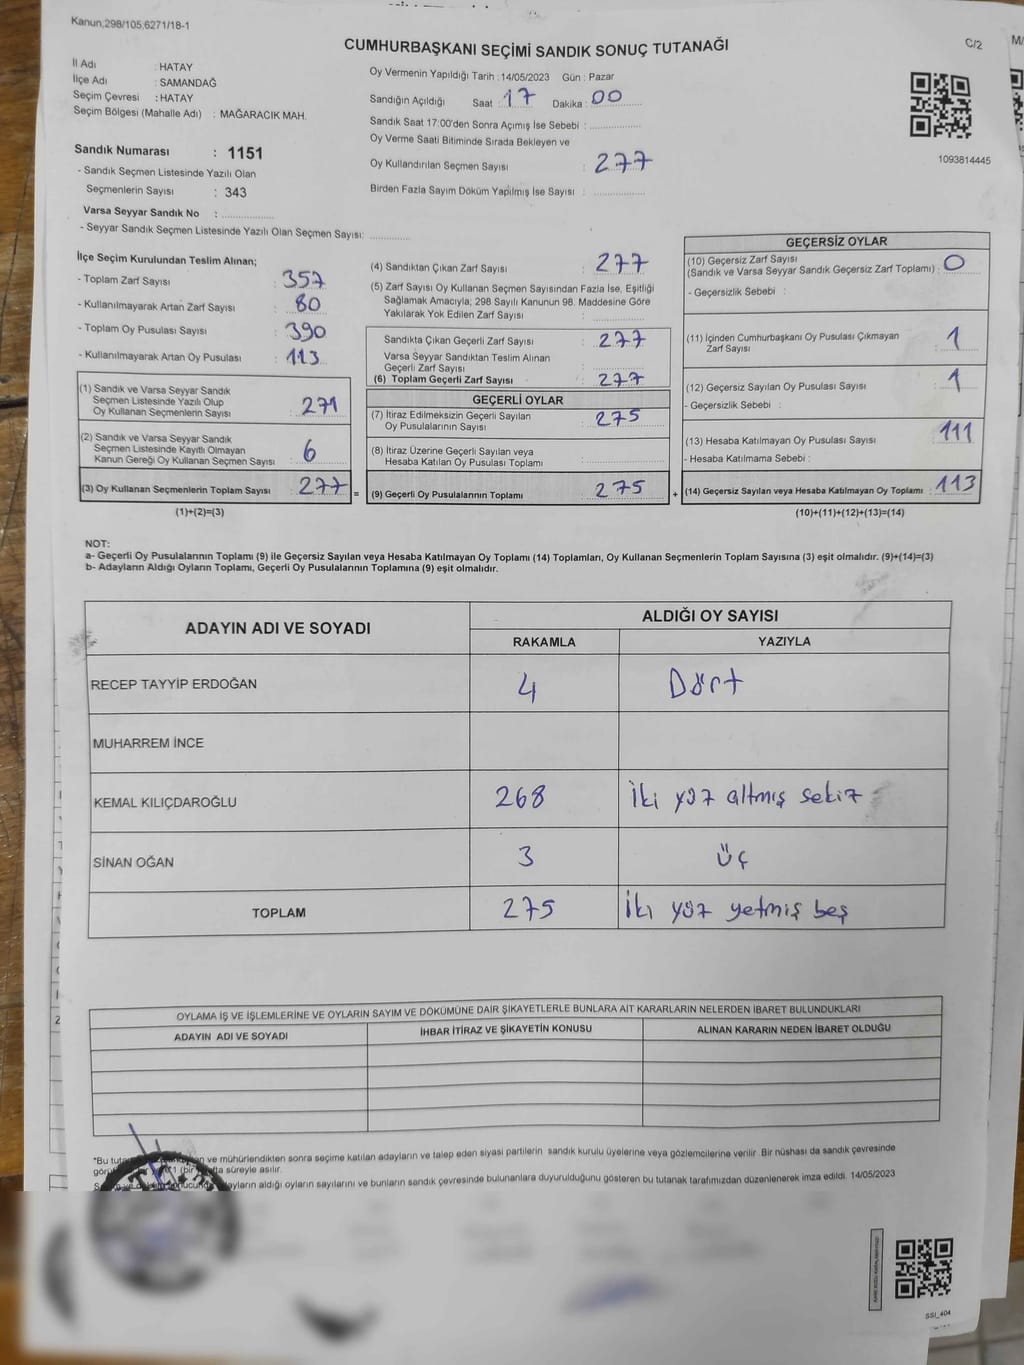 Kanun.298/105,6271/18-1
CUMHURBAŞKANI SEÇİMİ SANDIK SONUÇ TUTANAĞI
C/2
İl Adı : HATAY
İlçe Adı : SAMANDAĞ
Seçim Çevresi : HATAY
Seçim Bölgesi (Mahalle Adı) : MAĞARACIK MAH.
Sandık Numarası : 1151
- Sandık Seçmen Listesinde Yazılı Olan
Seçmenlerin Sayısı : 343
Varsa Seyyar Sandık No :
- Seyyar Sandık Seçmen Listesinde Yazılı Olan Seçmen Sayısı:
Oy Vermenin Yapıldığı Tarih : 14/05/2023 Gün : Pazar
Sandığın Açıldığı Saat : 17 Dakika : 00
Sandık Saat 17:00'den Sonra Açımış İse Sebebi :
Oy Verme Saati Bitiminde Sırada Bekleyen ve
Oy Kullandırılan Seçmen Sayısı : 277
Birden Fazla Sayım Döküm Yapılmış İse Sayısı :
1093814445
İlçe Seçim Kurulundan Teslim Alınan;
- Toplam Zarf Sayısı : 357
- Kullanılmayarak Artan Zarf Sayısı : 80
- Toplam Oy Pusulası Sayısı : 390
- Kullanılmayarak Artan Oy Pusulası : 113
(1) Sandık ve Varsa Seyyar Sandık
Seçmen Listesinde Yazılı Olup
Oy Kullanan Seçmenlerin Sayısı : 271
(2) Sandık ve Varsa Seyyar Sandık
Seçmen Listesinde Kayıtlı Olmayan
Kanun Gereği Oy Kullanan Seçmen Sayısı : 6
(3) Oy Kullanan Seçmenlerin Toplam Sayısı : 277 =
(1)+(2)=(3)
(4) Sandıktan Çıkan Zarf Sayısı : 277
(5) Zarf Sayısı Oy Kullanan Seçmen Sayısından Fazla İse, Eşitliği
Sağlamak Amacıyla; 298 Sayılı Kanunun 98. Maddesine Göre
Yakılarak Yok Edilen Zarf Sayısı :
Sandıkta Çıkan Geçerli Zarf Sayısı : 277
Varsa Seyyar Sandıktan Teslim Alınan
Geçerli Zarf Sayısı :
(6) Toplam Geçerli Zarf Sayısı : 277
GEÇERLİ OYLAR
(7) İtiraz Edilmeksizin Geçerli Sayılan
Oy Pusulalarının Sayısı : 275
(8) İtiraz Üzerine Geçerli Sayılan veya
Hesaba Katılan Oy Pusulası Toplamı :
(9) Geçerli Oy Pusulalarının Toplamı : 275 +
GEÇERSİZ OYLAR
(10) Geçersiz Zarf Sayısı
(Sandık ve Varsa Seyyar Sandık Geçersiz Zarf Toplamı) : 0
- Geçersizlik Sebebi :
(11) İçinden Cumhurbaşkanı Oy Pusulası Çıkmayan
Zarf Sayısı : 1
(12) Geçersiz Sayılan Oy Pusulası Sayısı : 1
- Geçersizlik Sebebi :
(13) Hesaba Katılmayan Oy Pusulası Sayısı : 111
- Hesaba Katılmama Sebebi :
(14) Geçersiz Sayılan veya Hesaba Katılmayan Oy Toplamı : 113
(10)+(11)+(12)+(13)=(14)
NOT:
a- Geçerli Oy Pusulalarının Toplamı (9) ile Geçersiz Sayılan veya Hesaba Katılmayan Oy Toplamı (14) Toplamları, Oy Kullanan Seçmenlerin Toplam Sayısına (3) eşit olmalıdır. (9)+(14)=(3)
b- Adayların Aldığı Oyların Toplamı, Geçerli Oy Pusulalarının Toplamına (9) eşit olmalıdır.
ADAYIN ADI VE SOYADI
ALDIĞI OY SAYISI
RAKAMLA YAZIYLA
RECEP TAYYİP ERDOĞAN 4 Dört
MUHARREM İNCE
KEMAL KILIÇDAROĞLU 268 İki yüz altmış sekiz
SİNAN OĞAN 3 üç
TOPLAM 275 İki yüz yetmiş beş
OYLAMA İŞ VE İŞLEMLERİNE VE OYLARIN SAYIM VE DÖKÜMÜNE DAİR ŞİKAYETLERLE BUNLARA AİT KARARLARIN NELERDEN İBARET BULUNDUKLARI
ADAYIN ADI VE SOYADI İHBAR İTİRAZ VE ŞİKAYETİN KONUSU ALINAN KARARIN NEDEN İBARET OLDUĞU
*Bu ve mühürlendikten sonra seçime katılan adayların ve talep eden siyasi partilerin sandık kurulu üyelerine veya gözlemcilerine verilir. Bir nüshası da sandık çevresinde
süreyle asılır.
aldığı oyların sayılarını ve bunların sandık çevresinde bulunanlara duyurulduğunu gösteren bu tutanak tarafımızdan düzenlenerek imza edildi. 14/05/2023
SSİ_404